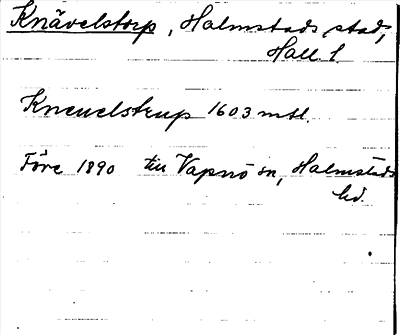 Knävelstorp, Halmstads stad,
Hall. l.
Kneuelstrup 1603 mtl.
Före 1890 till Vapnö sn, Halmstads
hd.